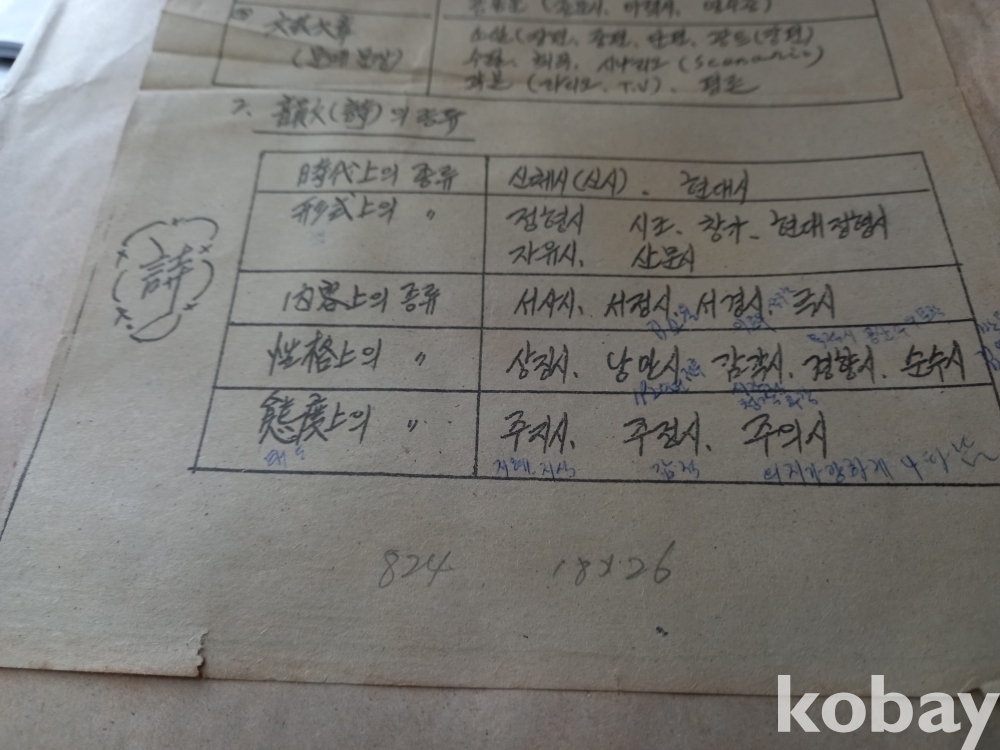 文藝文章
(문예문장)
소설(장편, 중편, 단편, 콩트(장편)
수필, 희곡, 시나리오 (Scenario)
각본 (라디오, T.V), 평론
2. 韻文(詩)의 종류
詩
時代上의 종류 신체시(신시). 현대시
形式上의 〃 정형시 시조. 창가. 현대정형시
자유시. 산문시
內容上의 종류 서사시. 서정시. 서경시. 극시
性格上의 〃 상징시. 낭만시. 감각시. 경향시. 순수시
態度上의 〃 주지시. 주정시. 주의시
태도 지혜. 지식 감정 의지가 강하게 나타남
824 18×26
kobay